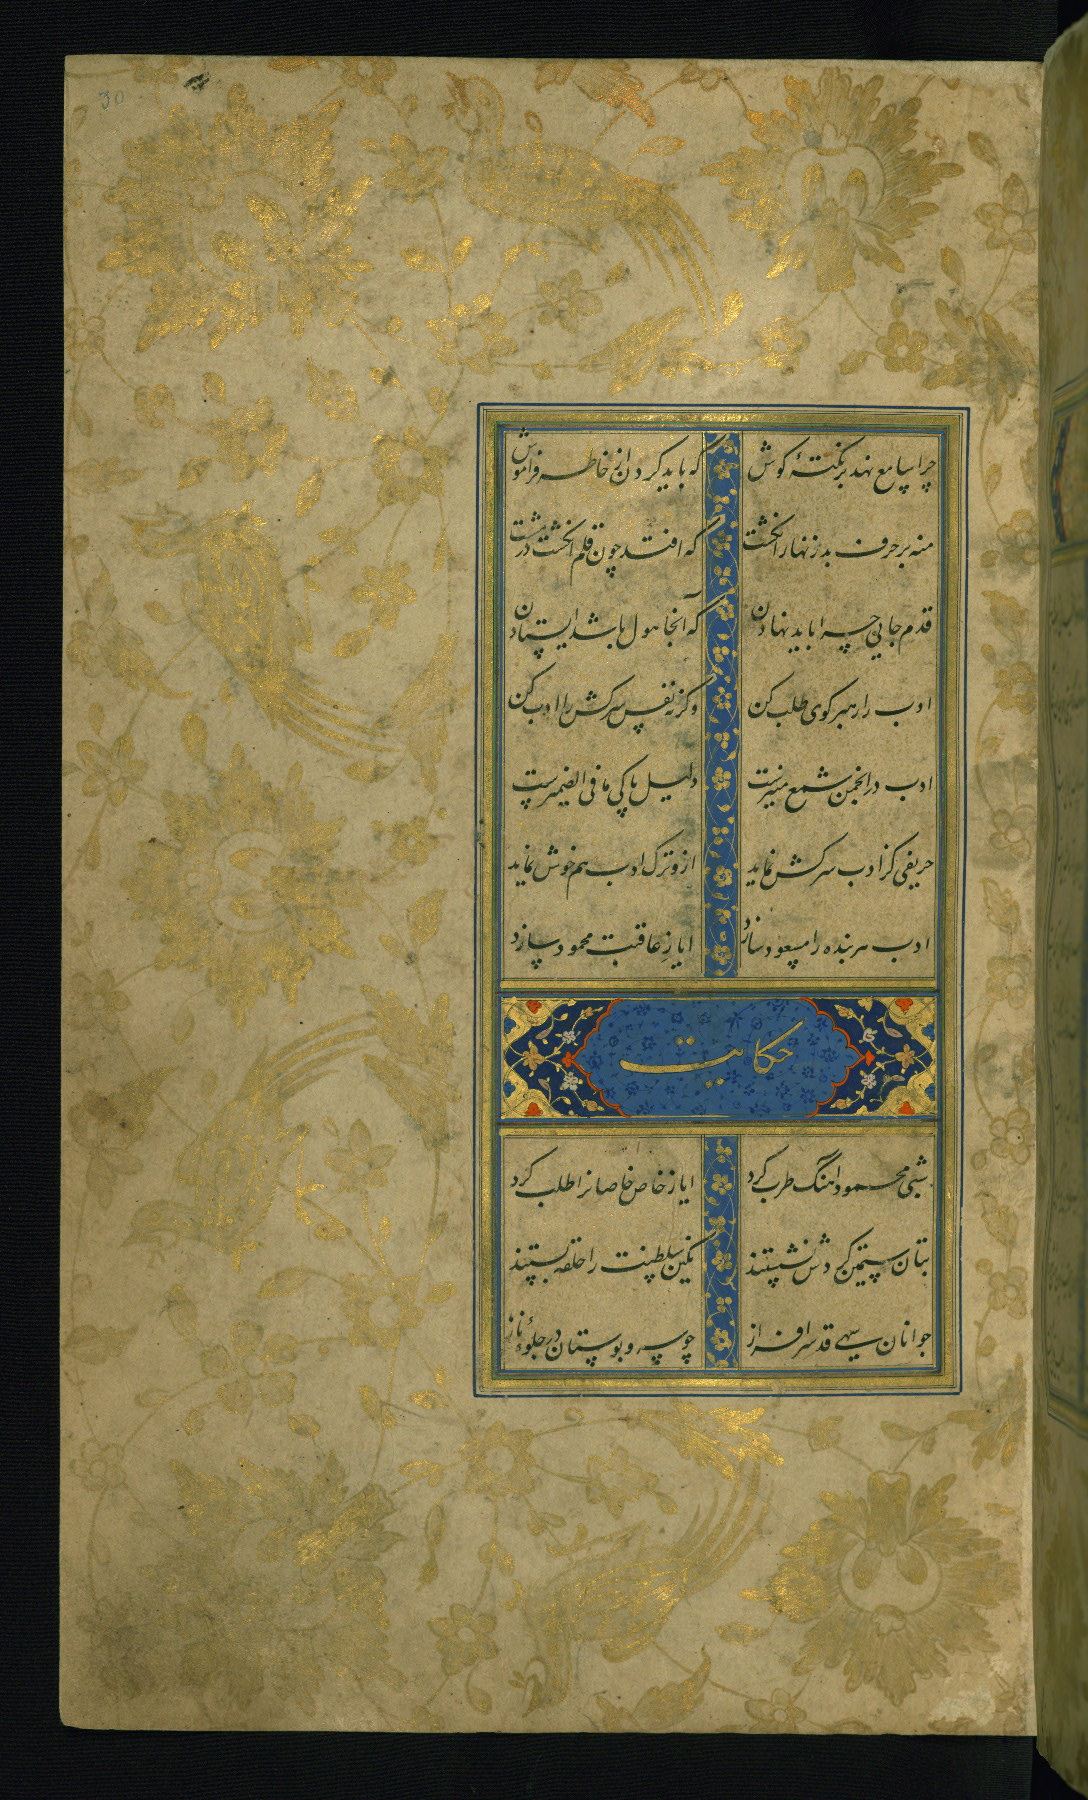 30
چرا سامع نهد بر نکتهٔ گوش که باید کردن از خاطر فراموش
منه بر حرف بد زنهار انگشت که افتد چون قلم انگشت در مشت
قدم جایی چرا باید نهادن که آنجا هول باشد ایستادن
ادب را رهبر کوی طلب کن وگرنه نفس سرکش را ادب کن
ادب در انجمن شمع منیرست دلیل پاکی ما فی الضمیرست
حریفی کز ادب سرکش نماید ازو ترک ادب هم خوش نماید
ادب هر بنده را مسعود سازد ایاز عاقبت محمود سازد
حکایت
شبی محمود آهنگ طرب کرد ایاز خاص خاصانرا طلب کرد
بتان سیمتن گردش نشستند نگین سلطنت را حلقه بستند
جوانان سهی قد سرافراز چو سرو بوستان در جلوهٔ ناز